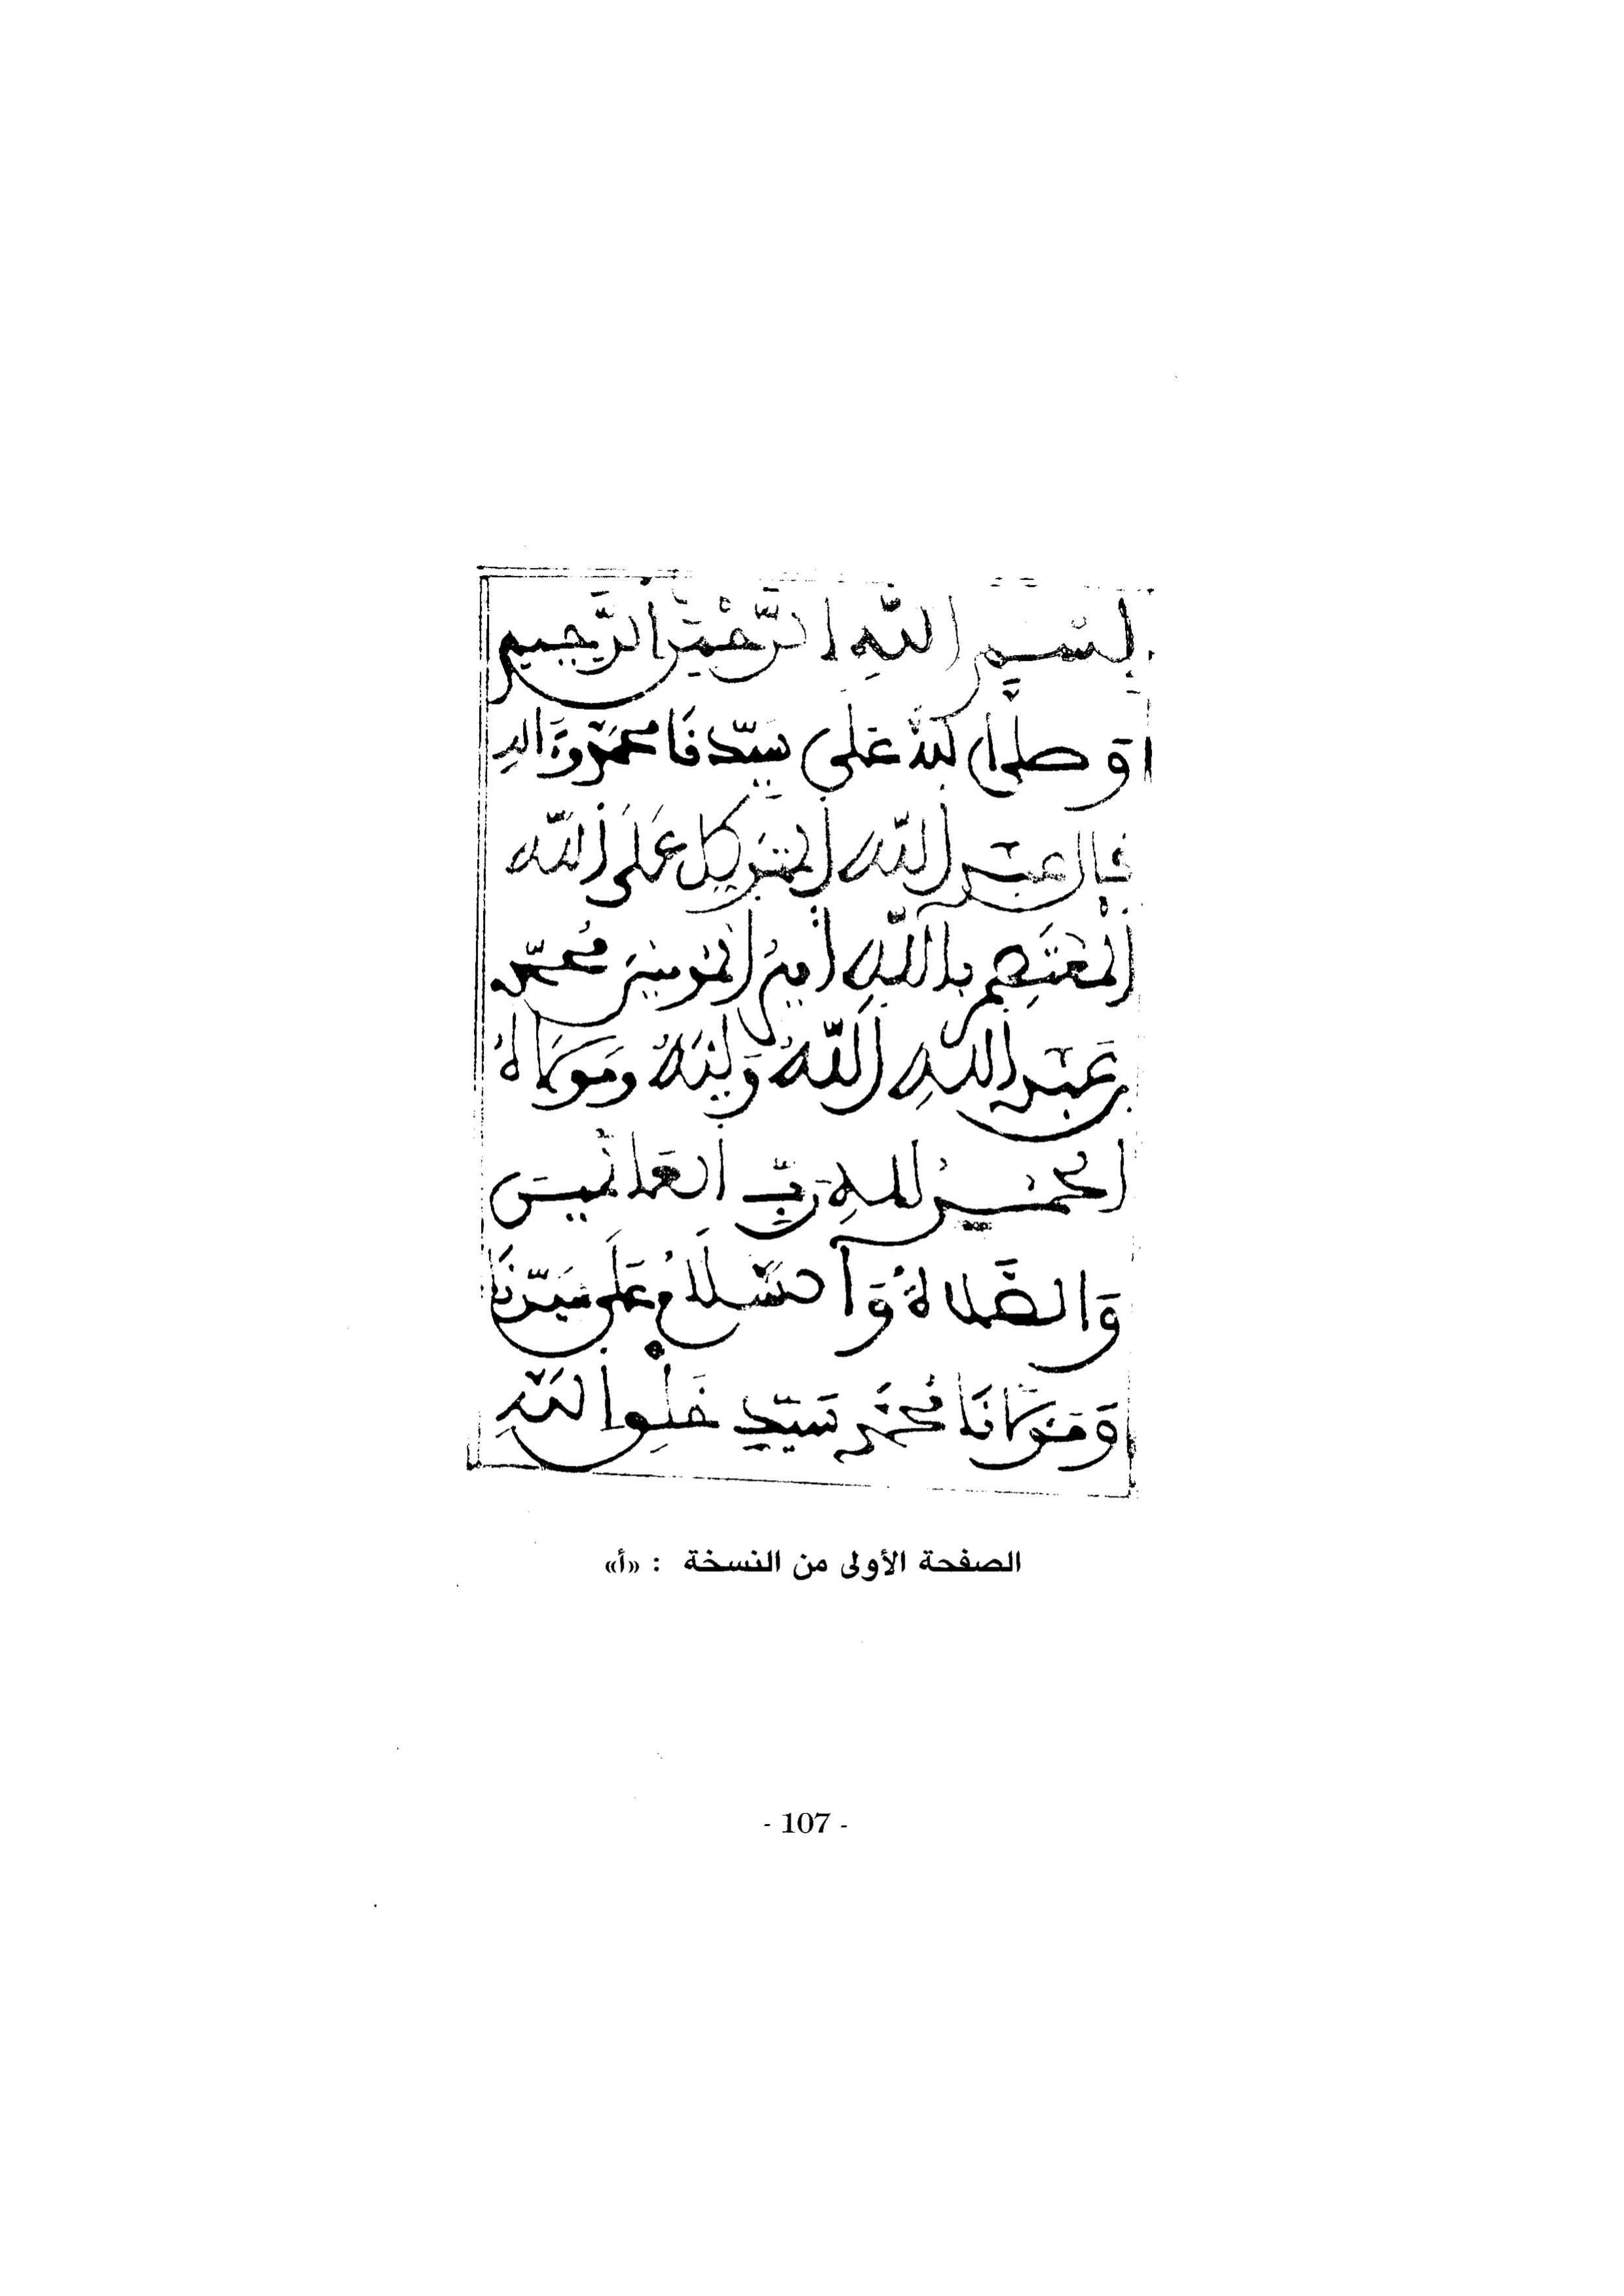 بسم الله الرحمن الرحيم
وصلى الله على سيدنا محمد وءاله
قال عبد الله المتوكل على الله
المعتصم بالله أمير المومنين محمد
بن عبد الله اللهُ وليه ومولاهُ
الحمد لله ربّ العالمين
وَالصَّلاةُ وَالسَّلَامُ عَلَى سَيِّدِنَا
وَمَوْلَانَا مُحَمَّدٍ سَيِّدِ خَلْقِ اللَّهِ
الصفحة الأولى من النسخة : «أ»
- 107 -